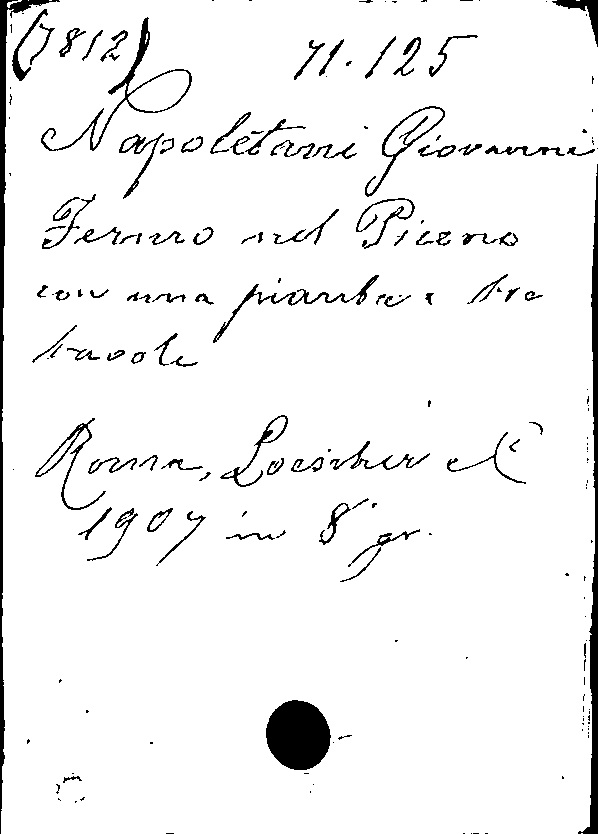 (7812) 71.125
Napoletani Giovanni
Fermo nel Piceno
con una pianta e tre
tavole
Roma, Loescher e C°
1907 in 8° gr.